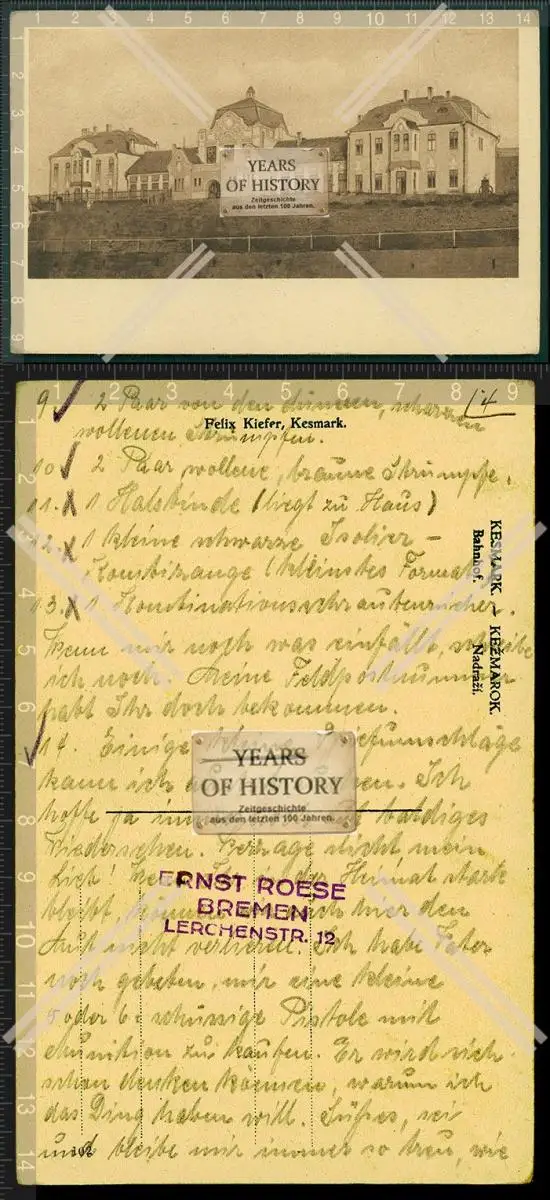 YEARS
OF HISTORY
Zeitgeschichte
aus den letzten 100 Jahren.
14
9. 2 Paar von den dünnen, schwarzen
Felix Kiefer, Kesmark.
wollenen Strümpfen.
10. 2 Paar wollene, braune Strümpfe.
11. 1 Halsbinde (liegt zu Haus)
12. 1 kleine schwarze Isolier-
Kombizange (kleinstes Format)
13. 1 Kombinationsschraubenzieher.
KESMARK. – KEŽMAROK.
Bahnhof. Nadraži.
Wenn mir noch was einfällt, schreibe
ich noch. Meine Feldpostnummer
habt Ihr doch bekommen.
14. Einige Briefumschläge
kann ich
hoffe ja baldiges
Wiedersehen. Verzage nicht mein
Lieb! der Heimat stark
bleibt, hier den
Mut nicht verlieren. Ich habe Vater
noch gebeten, mir eine kleine
5 oder 6-schüssige Pistole mit
Munition zu kaufen. Er wird sich
schon denken können, warum ich
das Ding haben will. Süßes, sei
und bleibe mir immer so treu, wie
YEARS
OF HISTORY
Zeitgeschichte
aus den letzten 100 Jahren.
ERNST ROESE
BREMEN
LERCHENSTR. 12